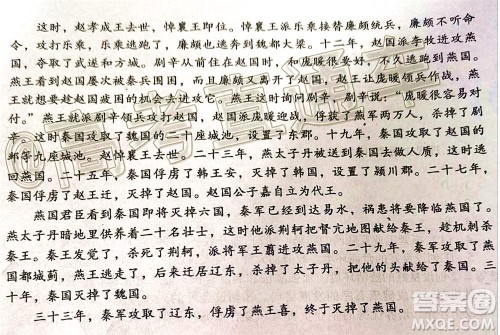 这时，赵孝成王去世，悼襄王即位。悼襄王派乐乘接替廉颇统兵，廉颇不听命
令，攻打乐乘，乐乘逃跑了，廉颇也逃奔到魏都大梁。十二年，赵国派李牧进攻燕
国，夺取了武遂和方城。剧辛从前住在赵国时，和庞暖很要好，不久逃跑到燕国。
燕王看到赵国屡次被秦兵围困，而且廉颇又离开了赵国，赵王让庞暖领兵作战，燕
王就想要趁赵国疲困的机会去进攻它。燕王这时询问剧辛，剧辛说：“庞暖很容易对
付。”燕王就派剧辛领兵攻打赵国，赵国派庞暖迎战，俘获了燕军两万人，杀掉了剧
辛。这时秦国攻取了魏国的二十座城池，设置了东郡。十九年，秦国攻取了赵国的
邺等九座城池。赵悼襄王去世。二十三年，燕太子丹被送到秦国去做人质，这时逃
回燕国。二十五年，秦国俘虏了韩王安，灭掉了韩国，设置了颍川郡。二十七年，
秦国俘虏了赵王迁，灭掉了赵国。赵国公子嘉自立为代王。
燕国君臣看到秦国即将灭掉六国，秦军已经到达易水，祸患将要降临燕国了。
燕太子丹暗地里供养着二十名壮士，这时他派荆轲把督亢地图献给秦王，趁机刺杀
秦王。秦王发觉了，杀死了荆轲，派将军王翦进攻燕国。二十九年，秦军攻取了燕
国都城蓟，燕王逃走了，后来迁居辽东，杀掉了太子丹，把他的头献给了秦国。三
十年，秦国灭掉了魏国。
三十三年，秦军攻取了辽东，俘虏了燕王喜，终于灭掉了燕国。
答案圈